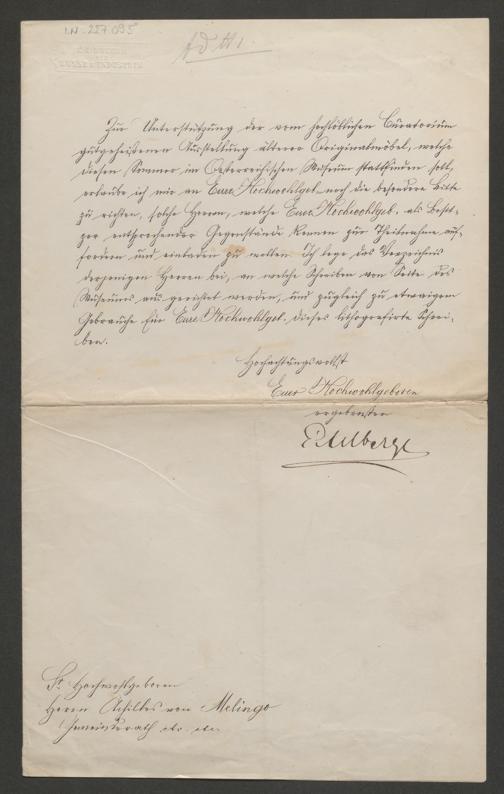 I.N. 227.095
ad Nr.
Zur Unterstützung der vom hochlöblichen Curatorium
gutgeheißenen Ausstellung älterer Originalmöbel, welche
diesen Sommer im Oesterreichischen Museum stattfinden soll,
erlaube ich mir an Eure Hochwohlgeb. noch die besondere Bitte
zu richten, solche Herren, welche Eure Hochwohlgeb. als Besit-
zer entsprechender Gegenstände kennen zur Theilnahme auf-
fordern und einladen zu wollen. Ich lege das Verzeichnis
derjenigen Herren bei, an welche Schreiben von Seite des
Museums aus gerichtet werden, und zugleich zu etwaigem
Gebrauche für Eure Hochwohlgeb. dieses lithografirte Schrei-
ben.
Hochachtungsvollst
Euer Hochwohlgeboren
ergebenster
Eitelberger
Sr. Hochwohlgeboren
Herrn Achilles von Melingo
Gemeinderath etc. etc.